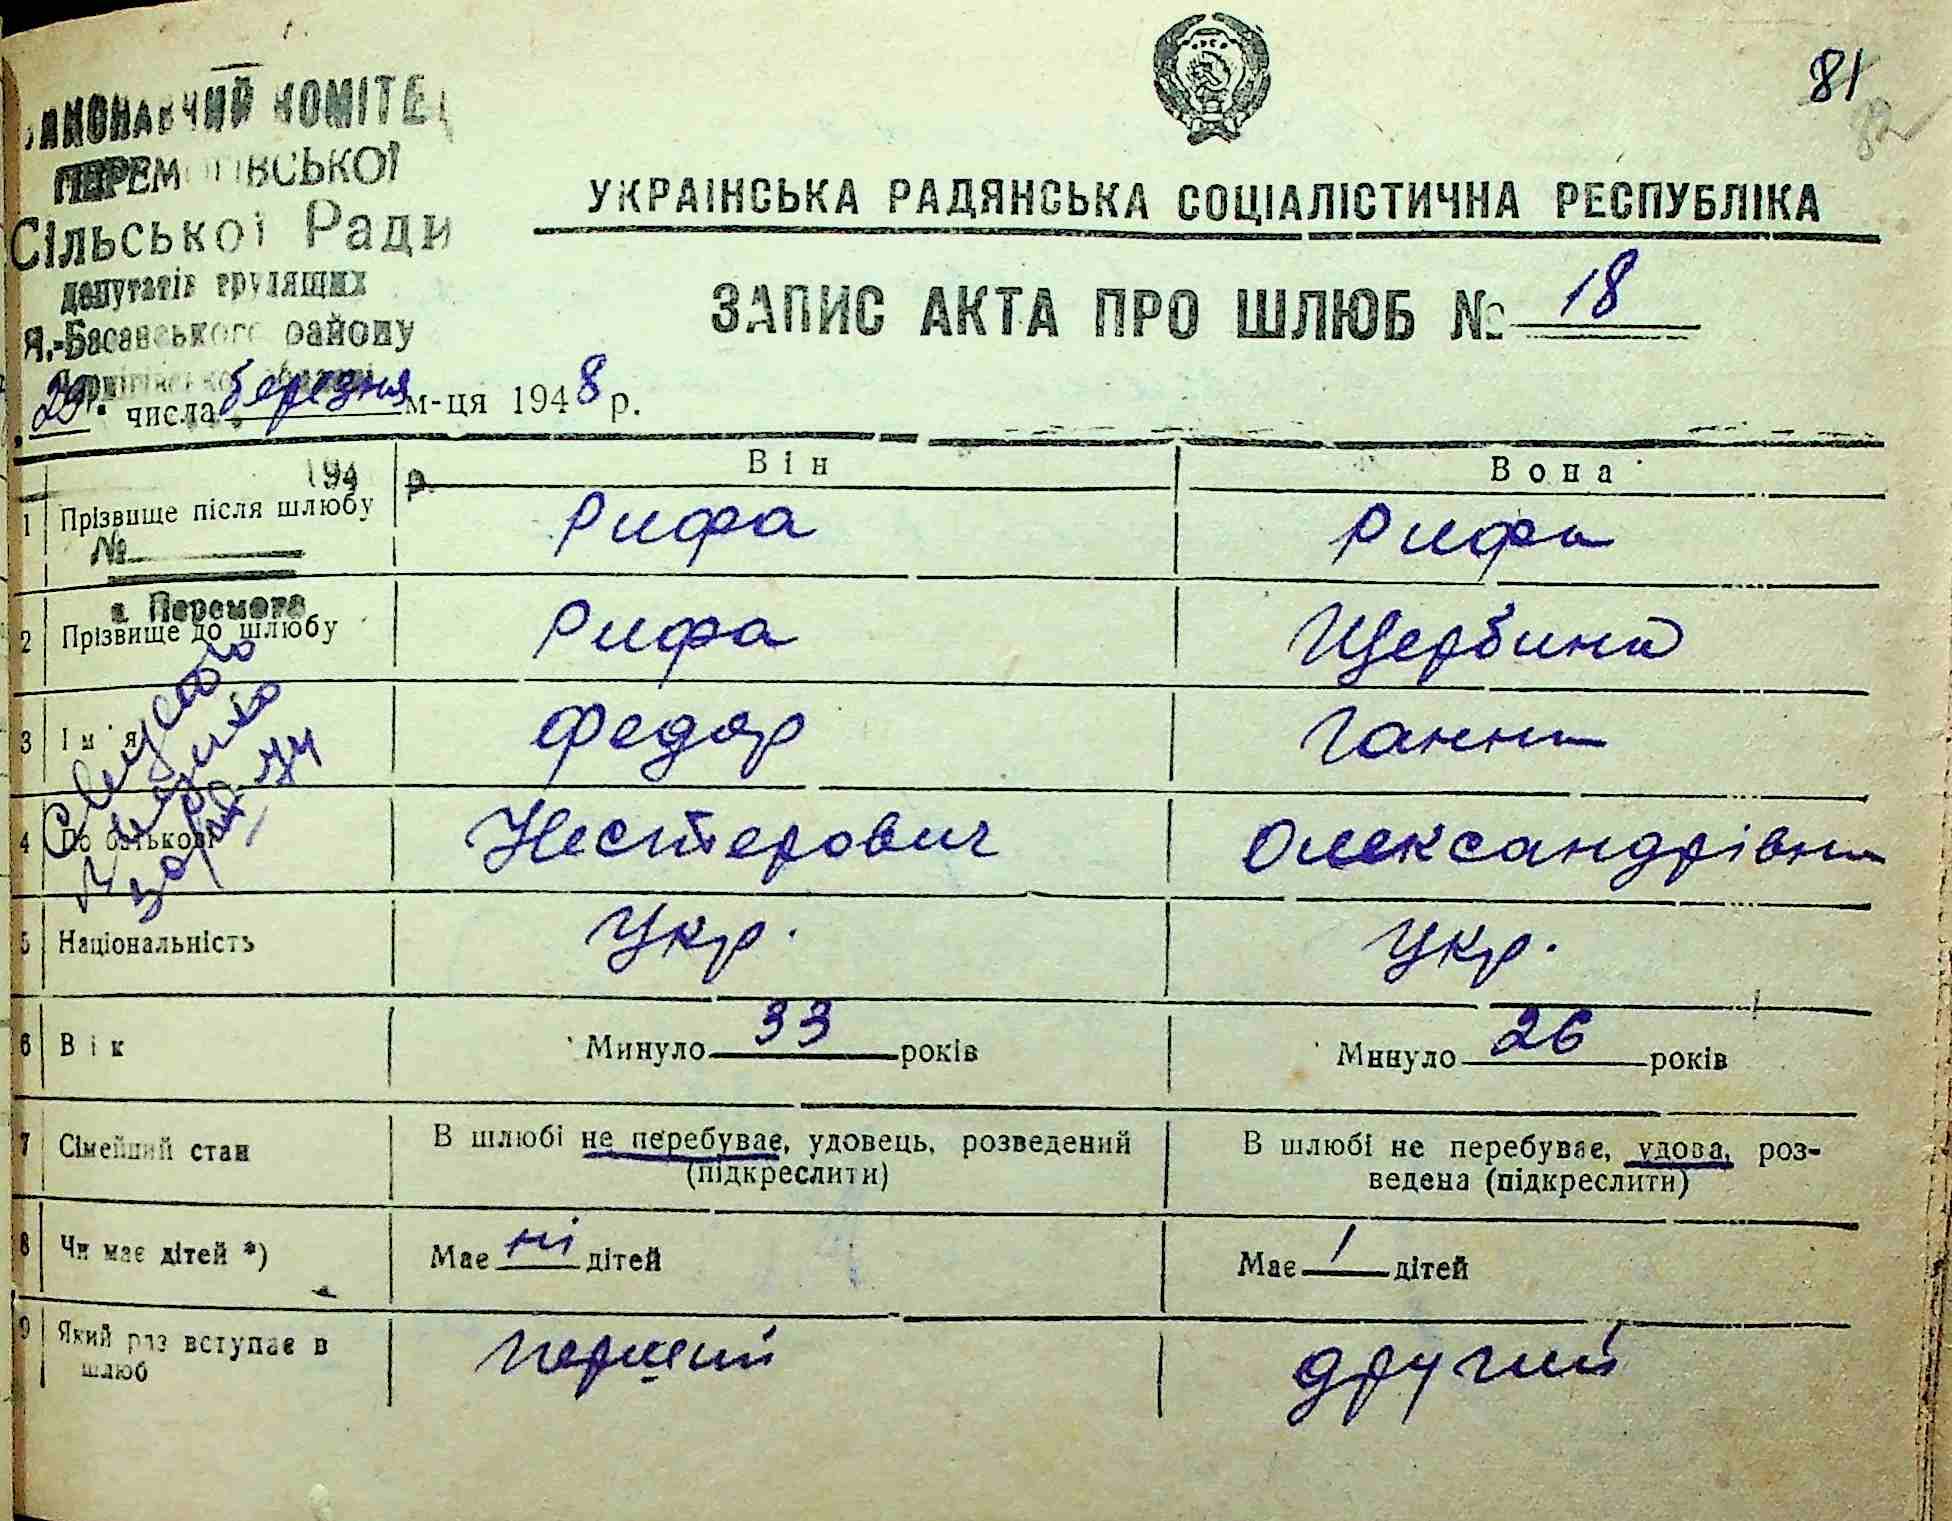 81
82
ВИКОНАВЧИЙ КОМІТЕТ
ПЕРЕМОГІВСЬКОЇ
Сільської Ради
депутатів трудящих
Я.-Басанського району
Чернігівської області
194 р.
№
с. Перемога
УКРАЇНСЬКА РАДЯНСЬКА СОЦІАЛІСТИЧНА РЕСПУБЛІКА
ЗАПИС АКТА ПРО ШЛЮБ № 18
„29" числа березня м-ця 1948 р.
Він Вона
1 Прізвище після шлюбу Рифа Рифа
2 Прізвище до шлюбу Рифа Щербина
3 Ім'я Федор Ганна
4 По батькові Нестерович Олександрівна
5 Національність Укр. Укр.
6 Вік Минуло 33 років Минуло 26 років
7 Сімейний стан В шлюбі не перебуває, удовець, розведений В шлюбі не перебуває, удова, роз-
(підкреслити) ведена (підкреслити)
8 Чи має дітей *) Має ні дітей Має 1 дітей
9 Який раз вступає в перший другий
шлюб